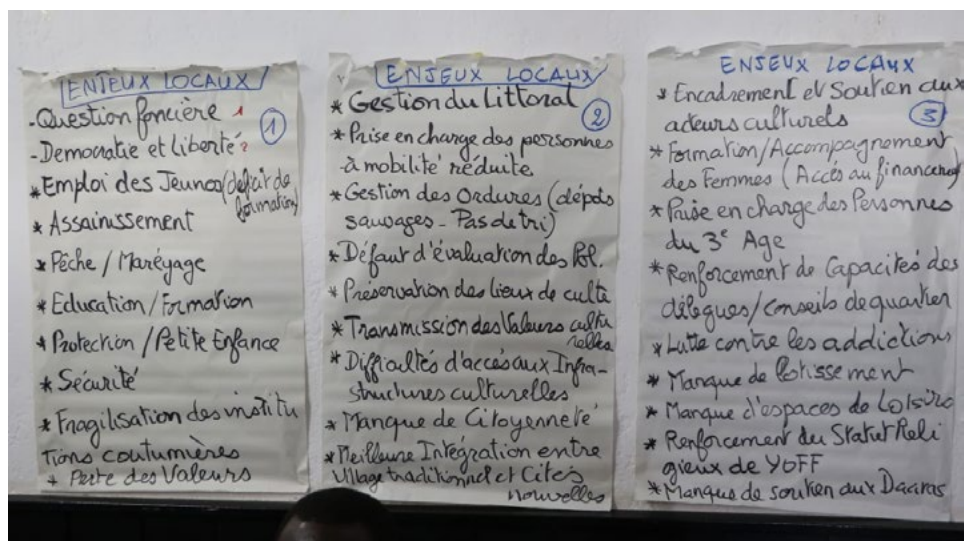 ENJEUX LOCAUX
1
-Question foncière 1
-Democratie et liberté 2
* Emploi des Jeunes (deficit de
formation)
* Assainissement
* Pêche / Maréyage
* Education / Formation
* Protection / Petite Enfance
* Sécurité
* Fragilisation des institu
tions coutumières
* Perte des Valeurs
ENJEUX LOCAUX
2
* Gestion du Littoral
* Prise en charge des personnes
à mobilité réduite.
* Gestion des Ordures (dépots
sauvages - Pas de tri)
* Défaut d'évaluation des
* Préservation des lieux de culte
* Transmission des Valeurs cultu
relles
* Difficultés d'accés aux Infra-
structures culturelles
* Manque de Citoyenneté
* Meilleure Intégration entre
Village traditionnel et Cités
nouvelles
ENJEUX LOCAUX
3
* Encadrement et Soutien aux
acteurs culturels
* Formation/Accompagnement
des Femmes (Accés au financement)
* Prise en charge des Personnes
du 3e Age
* Renforcement de Capacités des
délégues/Conseils de quartier
* Lutte contre les addictions
* Manque de lotissement
* Manque d'espaces de Loisirs
* Renforcement du Statut Reli
gieux de YOFF
* Manque de soutien aux Daaras